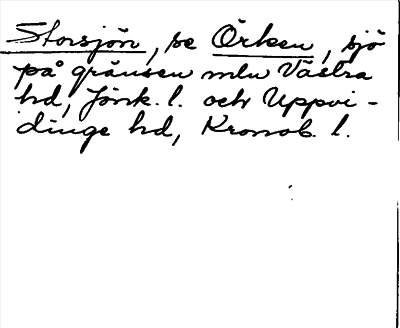 Storsjön, se Örken, sjö
på gränsen mln Västra
hd, Jönk. l. och Uppvi-
dinge hd, Kronob. l.